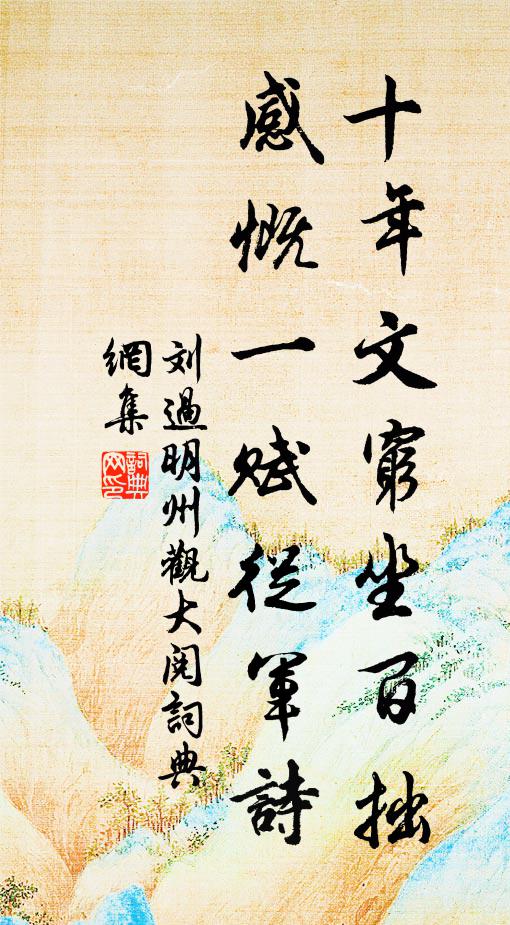 十年文窮坐百拙
感慨一賦從軍詩
刘過明州觀大閱詞典
網集
詞典
网印